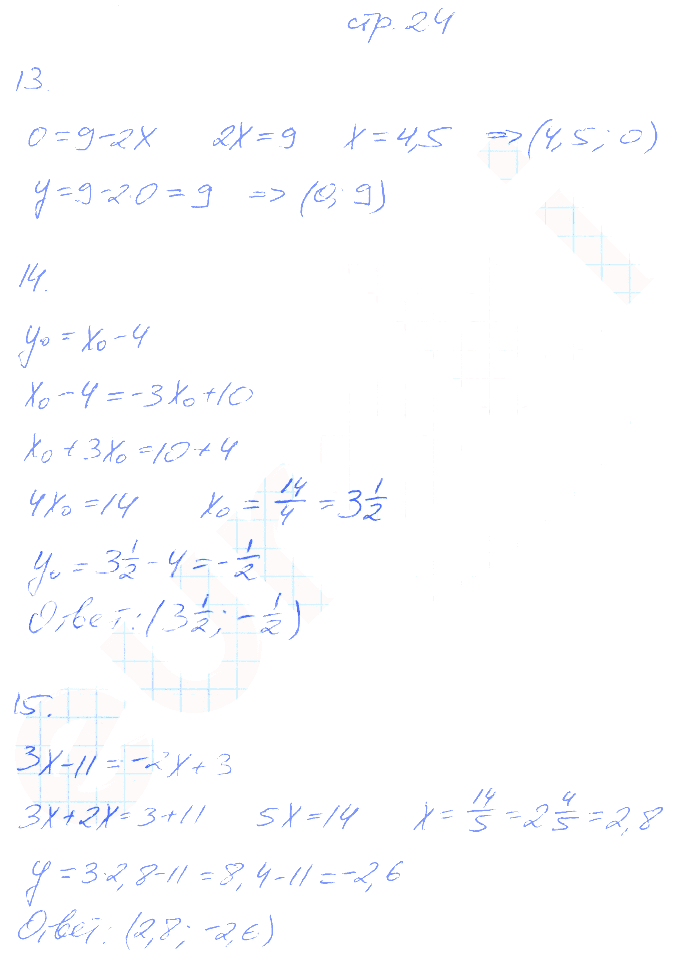 стр. 24
13.
0 = 9 - 2x 2x = 9 x = 4,5 => (4,5; 0)
y = 9 - 2·0 = 9 => (0; 9)
14.
y₀ = x₀ - 4
x₀ - 4 = -3x₀ + 10
x₀ + 3x₀ = 10 + 4
4x₀ = 14 x₀ = 14/4 = 3 1/2
y₀ = 3 1/2 - 4 = - 1/2
Ответ: (3 1/2; - 1/2)
15.
3x - 11 = -2x + 3
3x + 2x = 3 + 11 5x = 14 x = 14/5 = 2 4/5 = 2,8
y = 3·2,8 - 11 = 8,4 - 11 = -2,6
Ответ: (2,8; -2,6)